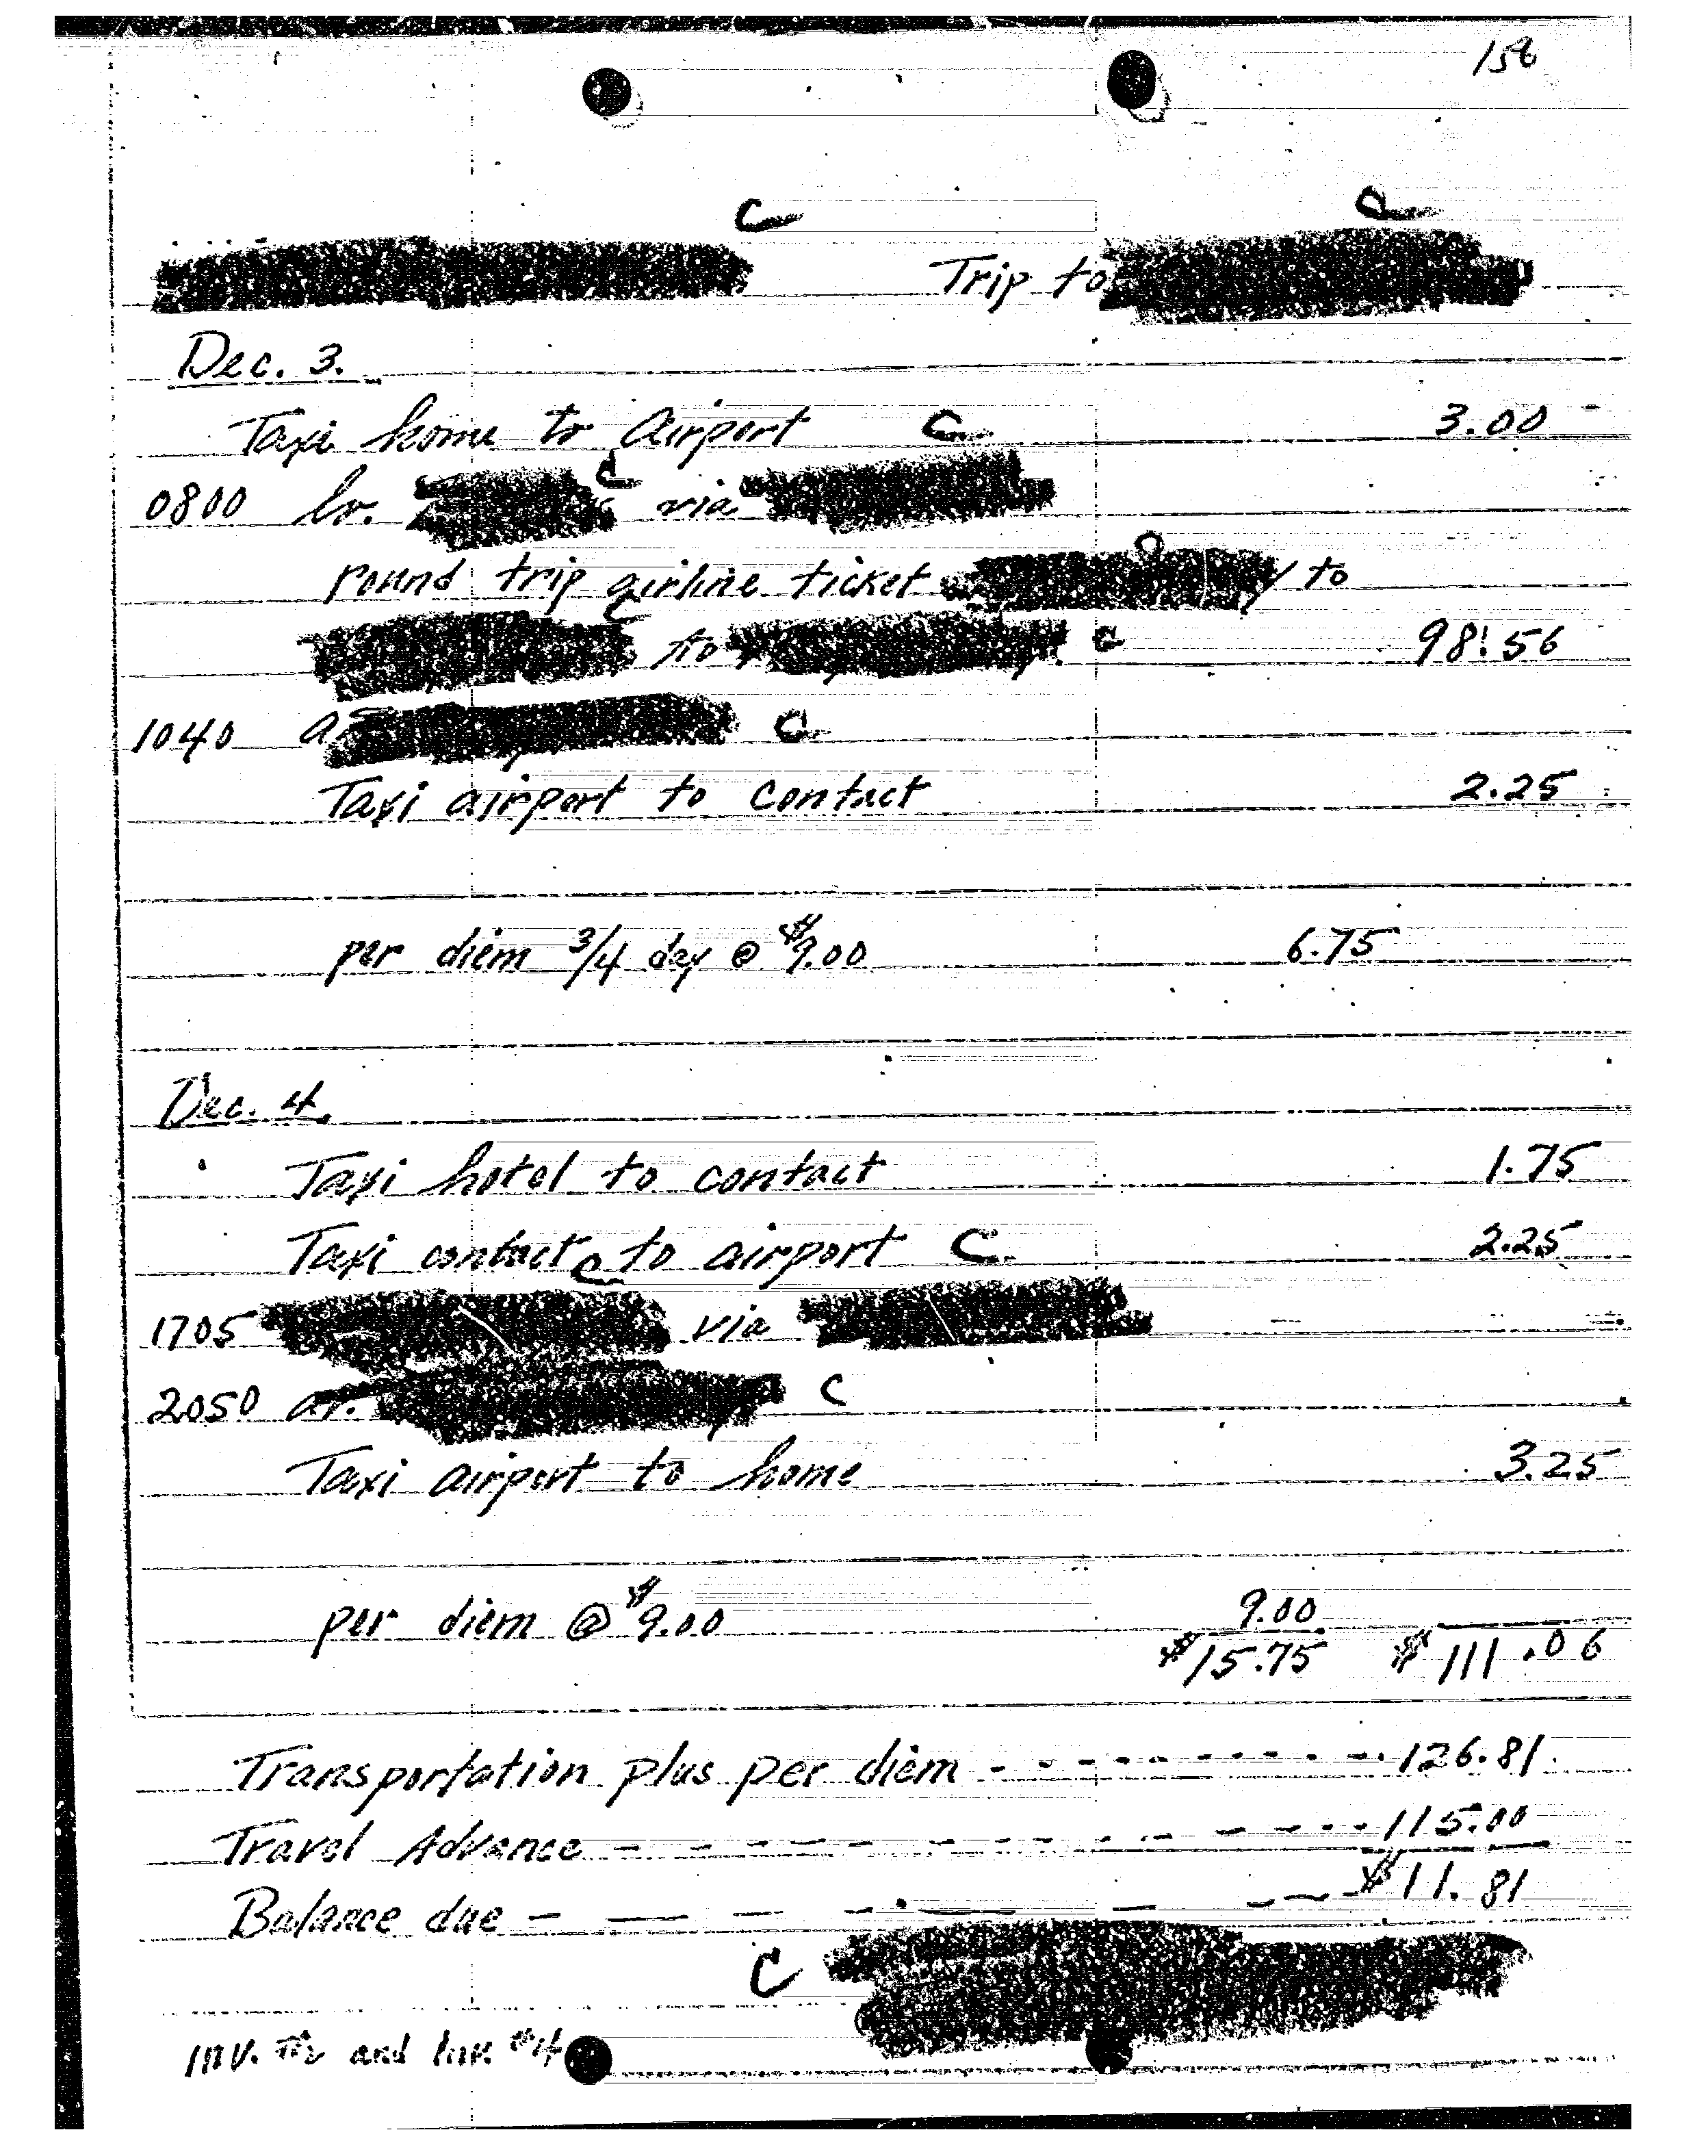 158
C C
Trip to
Dec. 3.
Taxi home to Airport C 3.00
0800 lv. C via
round trip airline ticket C to
C to C 98.56
1040 a C
Taxi airport to contact 2.25
per diem 3/4 day @ $9.00 6.75
Dec. 4.
Taxi hotel to contact 1.75
Taxi contact to airport C 2.25
1705 C via
2050 ar. C
Taxi airport to home 3.25
per diem @ $9.00 9.00
$15.75 $111.06
Transportation plus per diem - - - - - - - - - - 126.81
Travel Advance - - - - - - - - - - - - - 115.00
Balance due - - - - - - - - - $11.81
C
Inv. and Inv. #4